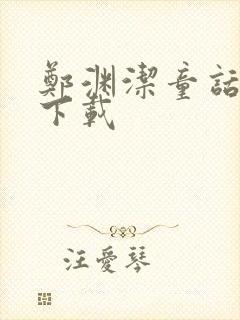 鄭渊潔童話
下載
汪愛琴